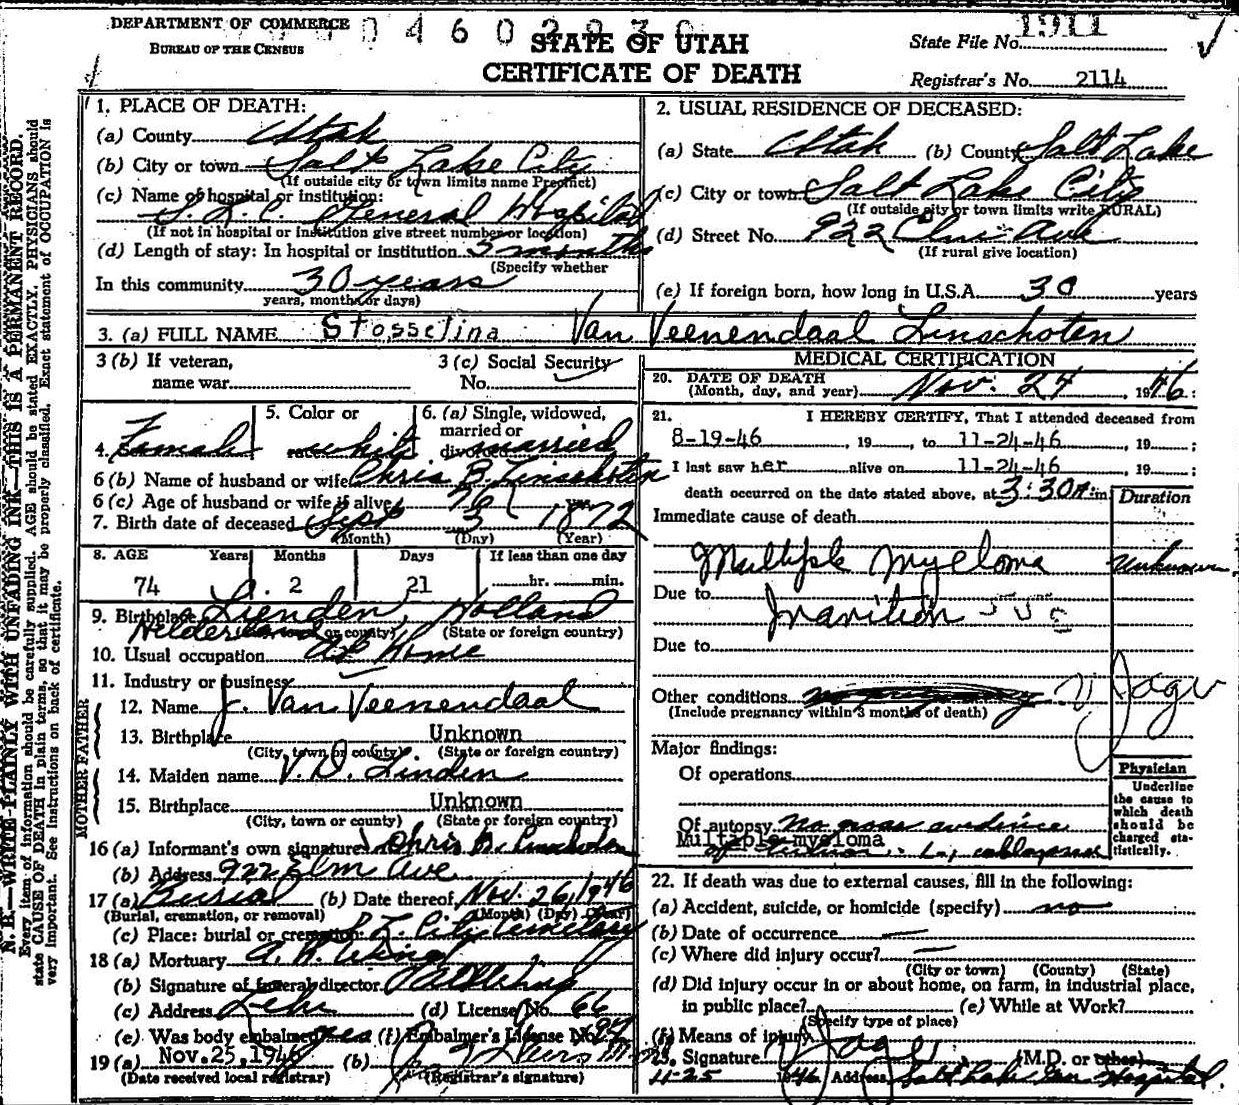 DEPARTMENT OF COMMERCE
BUREAU OF THE CENSUS
0 4 6 0 2 9 3 0
STATE OF UTAH
CERTIFICATE OF DEATH
State File No. 1911
Registrar's No. 2114
N. B.—WRITE PLAINLY WITH UNFADING INK—THIS IS A PERMANENT RECORD.
Every item of information should be carefully supplied. AGE should be stated EXACTLY. PHYSICIANS should
state CAUSE OF DEATH in plain terms, so that it may be properly classified. Exact statement of OCCUPATION is
very important. See instructions on back of certificate.
1. PLACE OF DEATH:
(a) County Utah
(b) City or town Salt Lake City
(If outside city or town limits name Precinct)
(c) Name of hospital or institution:
S. L. C. General Hospital
(If not in hospital or institution give street number or location)
(d) Length of stay: In hospital or institution 3 months
(Specify whether
In this community 30 years
years, months or days)
2. USUAL RESIDENCE OF DECEASED:
(a) State Utah (b) County Salt Lake
(c) City or town Salt Lake City
(If outside city or town limits write RURAL)
(d) Street No. 922 Elm Ave
(If rural give location)
(e) If foreign born, how long in U.S.A. 30 years
3. (a) FULL NAME Stosselina Van Veenendaal Linschoten
3 (b) If veteran,
name war
3 (c) Social Security
No.
4. Female
5. Color or
race white
6. (a) Single, widowed,
married or
divorced married
6 (b) Name of husband or wife Chris B. Linschoten
6 (c) Age of husband or wife if alive 76 yrs.
7. Birth date of deceased Sept 3 1872
(Month) (Day) (Year)
8. AGE Years Months Days If less than one day
74 2 21 hr. min.
9. Birthplace Lienden, Holland
(City, town or county) (State or foreign country)
10. Usual occupation At Home
11. Industry or business
FATHER
12. Name J. Van Veenendaal
13. Birthplace Unknown
(City, town or county) (State or foreign country)
MOTHER
14. Maiden name V. D. Linden
15. Birthplace Unknown
(City, town or county) (State or foreign country)
16 (a) Informant's own signature Chris B. Linschoten
(b) Address 922 Elm Ave
17 (a) Burial (b) Date thereof Nov. 26, 1946
(Burial, cremation, or removal) (Month) (Day) (Year)
(c) Place: burial or cremation S. L. City Cemetary
18 (a) Mortuary A. R. Wing
(b) Signature of funeral director
(c) Address Lehi (d) License No. 66
(e) Was body embalmed yes (f) Embalmer's License No.
19 (a) Nov. 25, 1946 (b)
(Date received local registrar) (Registrar's signature)
MEDICAL CERTIFICATION
20. DATE OF DEATH
(Month, day, and year) Nov. 24, 1946:
21. I HEREBY CERTIFY, That I attended deceased from
8-19-46, 19 , to 11-24-46, 19 ;
I last saw her alive on 11-24-46, 19 ;
death occurred on the date stated above, at 3:30A.m.
Duration
Immediate cause of death
Multiple myeloma Unknown
Due to Inanition
Due to
Other conditions no pregnancy
(Include pregnancy within 3 months of death)
Major findings:
Of operations
Of autopsy no gross evidence
Multiple myeloma
Physician
Underline
the cause to
which death
should be
charged sta-
tistically.
22. If death was due to external causes, fill in the following:
(a) Accident, suicide, or homicide (specify) no
(b) Date of occurrence —
(c) Where did injury occur? —
(City or town) (County) (State)
(d) Did injury occur in or about home, on farm, in industrial place,
in public place? (e) While at Work?
(Specify type of place)
(f) Means of injury
23. Signature (M.D. or other)
11-25 1946 Address Salt Lake Gen Hospital.